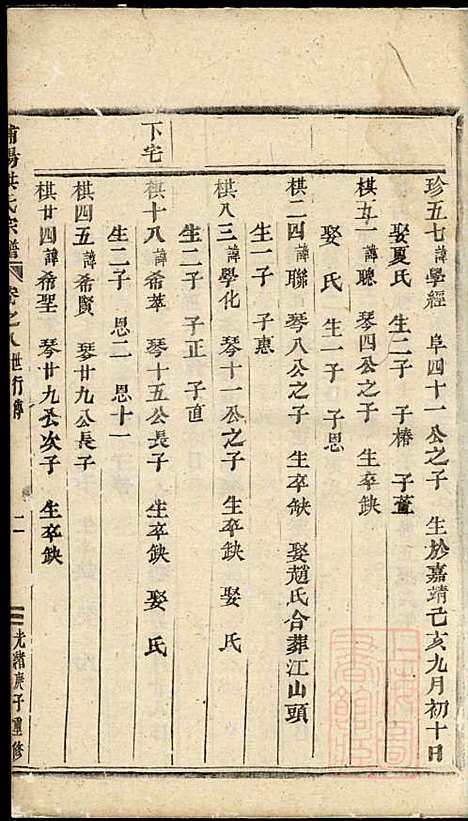 珍五七諱學經 阜四十一公之子 生於嘉靖己亥九月初十日
娶夏氏 生二子 子椿 子萱
棋五一諱聰 琴四公之子 生卒缺
娶 氏 生一子 子恩
棋二四諱聯 琴八公之子 生卒缺 娶趙氏合葬江山頭
生一子 子惠
棋八三諱學化 琴十一公之子 生卒缺 娶 氏
生二子 子正 子直
下宅
棋十八諱希萃 琴十五公長子 生卒缺 娶 氏
生二子 思二 思十一
棋四五諱希賢 琴廿九公長子
棋廿四諱希聖 琴廿九公次子 生卒缺
陽洪氏宗譜 卷之八世行傳 二 光緒庚子重修